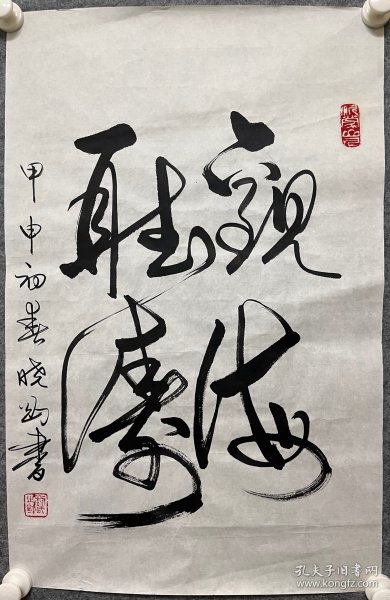 觀海
聽濤
甲申初春曉鈞書
孔夫子旧书网
www.kongfz.com